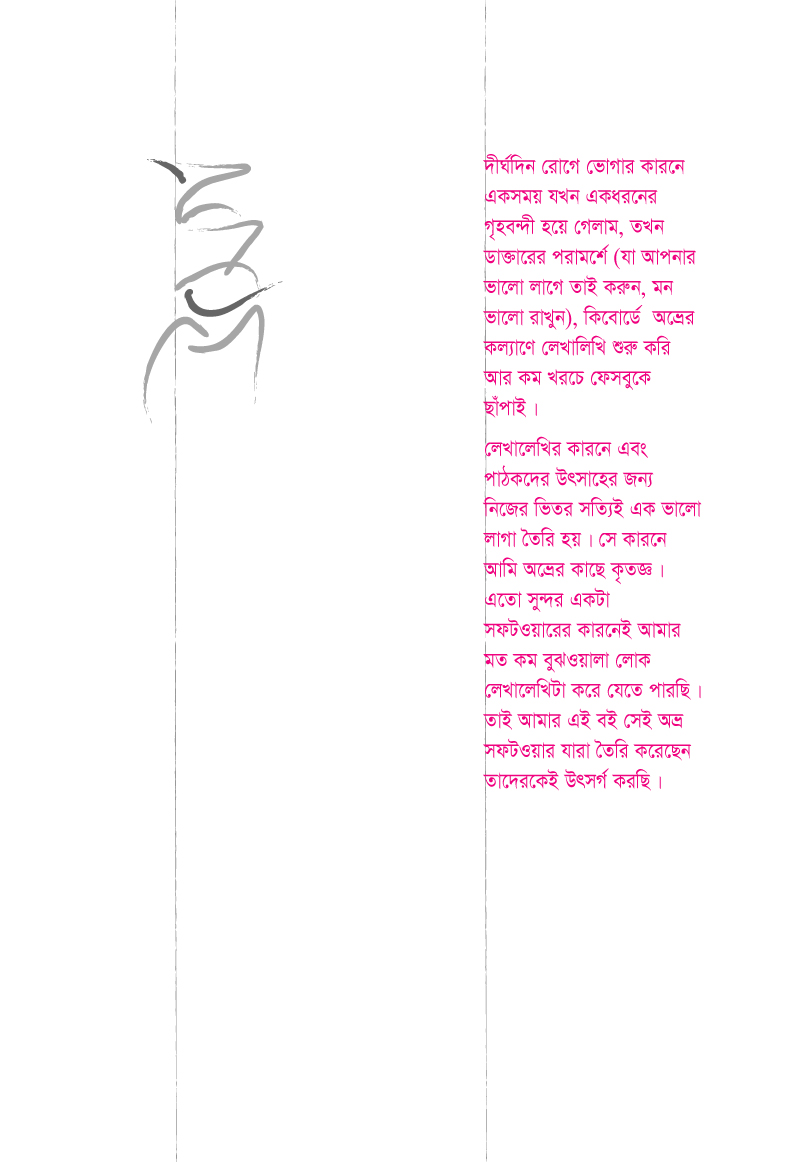 দীর্ঘদিন রোগে ভোগার কারনে
একসময় যখন একধরনের
গৃহবন্দী হয়ে গেলাম, তখন
ডাক্তারের পরামর্শে (যা আপনার
ভালো লাগে তাই করুন, মন
ভালো রাখুন), কিবোর্ডে অভ্রের
কল্যাণে লেখালিখি শুরু করি
আর কম খরচে ফেসবুকে
ছাঁপাই।
লেখালেখির কারনে এবং
পাঠকদের উৎসাহের জন্য
নিজের ভিতর সত্যিই এক ভালো
লাগা তৈরি হয়। সে কারনে
আমি অভ্রের কাছে কৃতজ্ঞ।
এতো সুন্দর একটা
সফটওয়ারের কারনেই আমার
মত কম বুঝওয়ালা লোক
লেখালেখিটা করে যেতে পারছি।
তাই আমার এই বই সেই অভ্র
সফটওয়ার যারা তৈরি করেছেন
তাদেরকেই উৎসর্গ করছি।